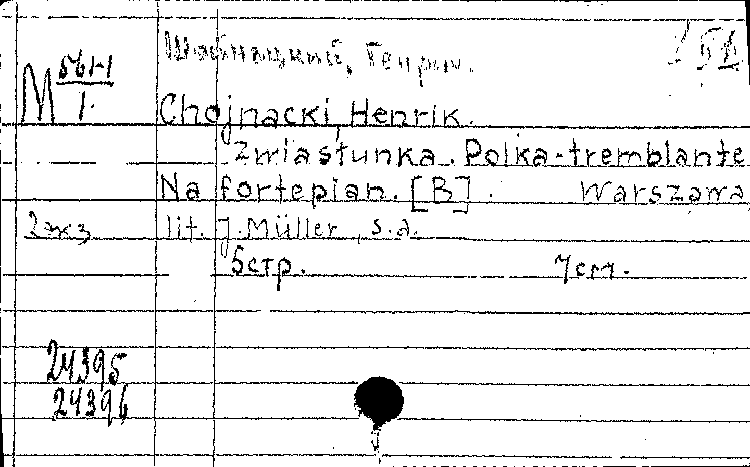 Генрик.
М 56н1
1.
Chojnacki, Henrik.
Zwiastunka. Polka-tremblante
Na fortepian. [B]. Warszawa,
2жз lit. J. Müller, s.a.
5стр. 7см.
24395
24396